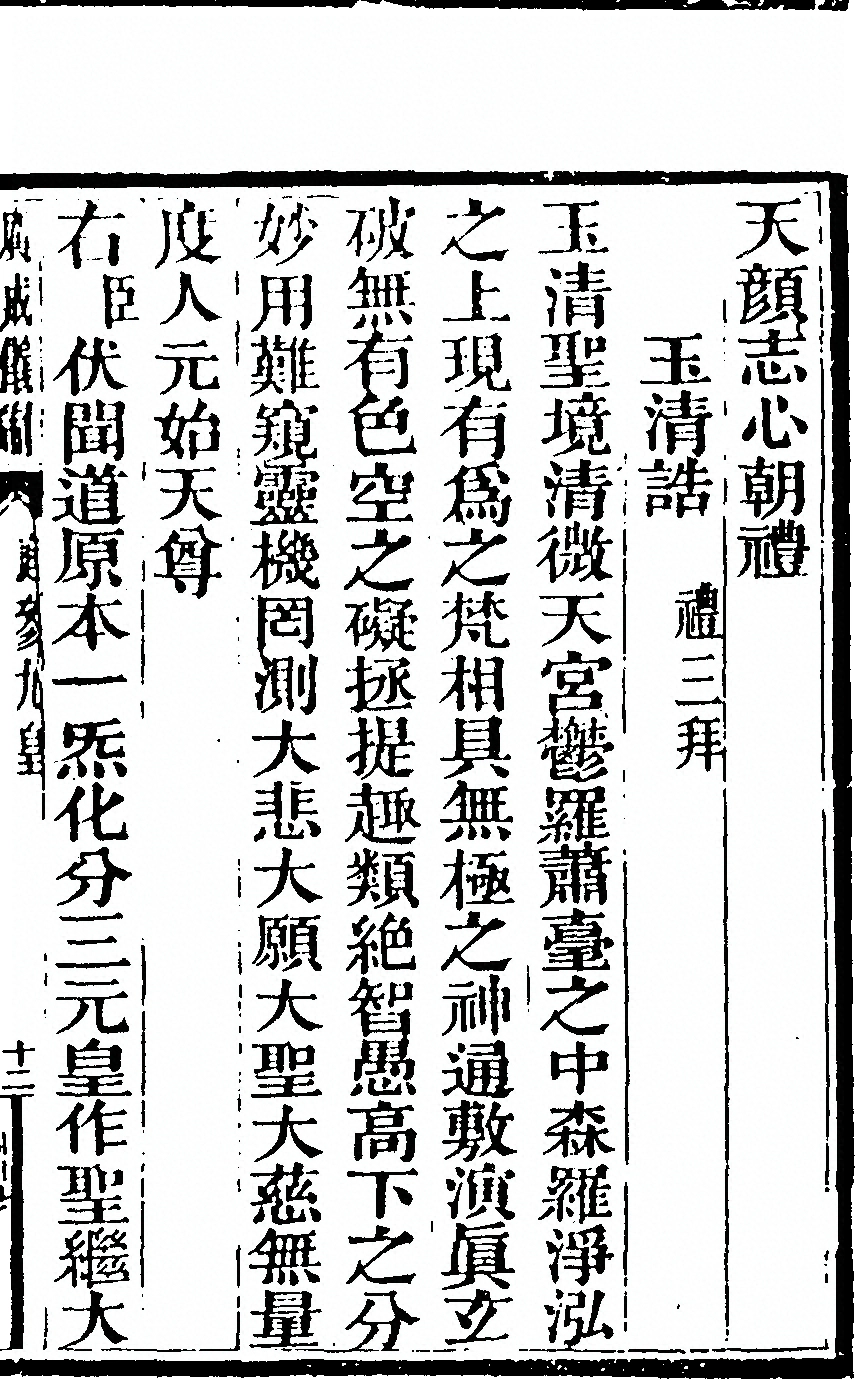 天顏志心朝禮
玉清誥　禮三拜
玉清聖境清微天宮鬱羅蕭臺之中森羅淨泓
之上現有爲之梵相具無極之神通敷演眞玄
破無有色空之礙拯提趣類絶智愚高下之分
妙用難窺靈機罔測大悲大願大聖大慈無量
度人元始天尊
右臣伏聞道原本一炁化分三元皇作聖繼大
廣成儀制
參九皇
十二